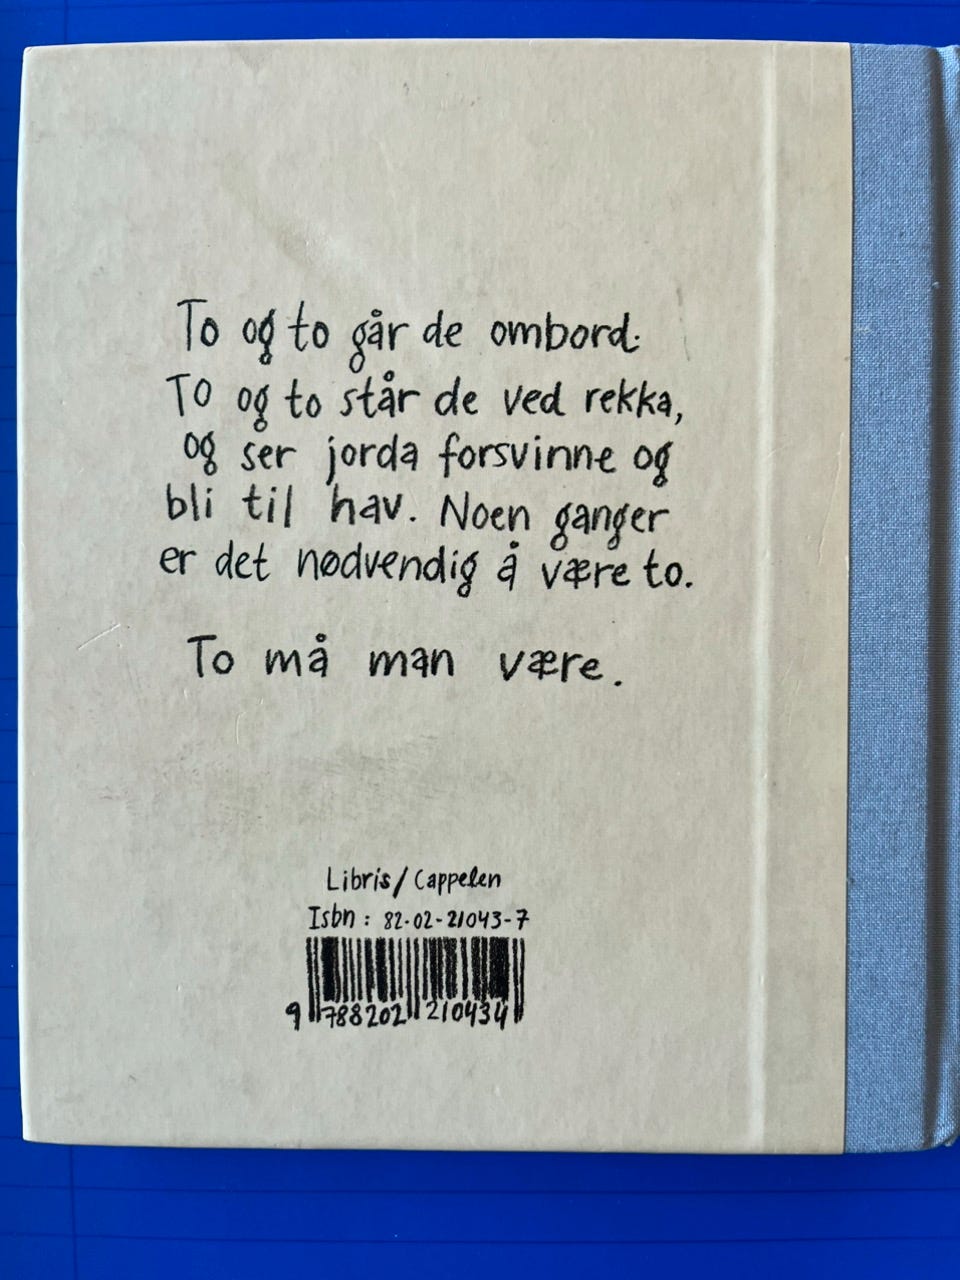 To og to går de ombord.
To og to står de ved rekka,
og ser jorda forsvinne og
bli til hav. Noen ganger
er det nødvendig å være to.
To må man være.
Libris/Cappelen
Isbn: 82-02-21043-7
9 788202 210434